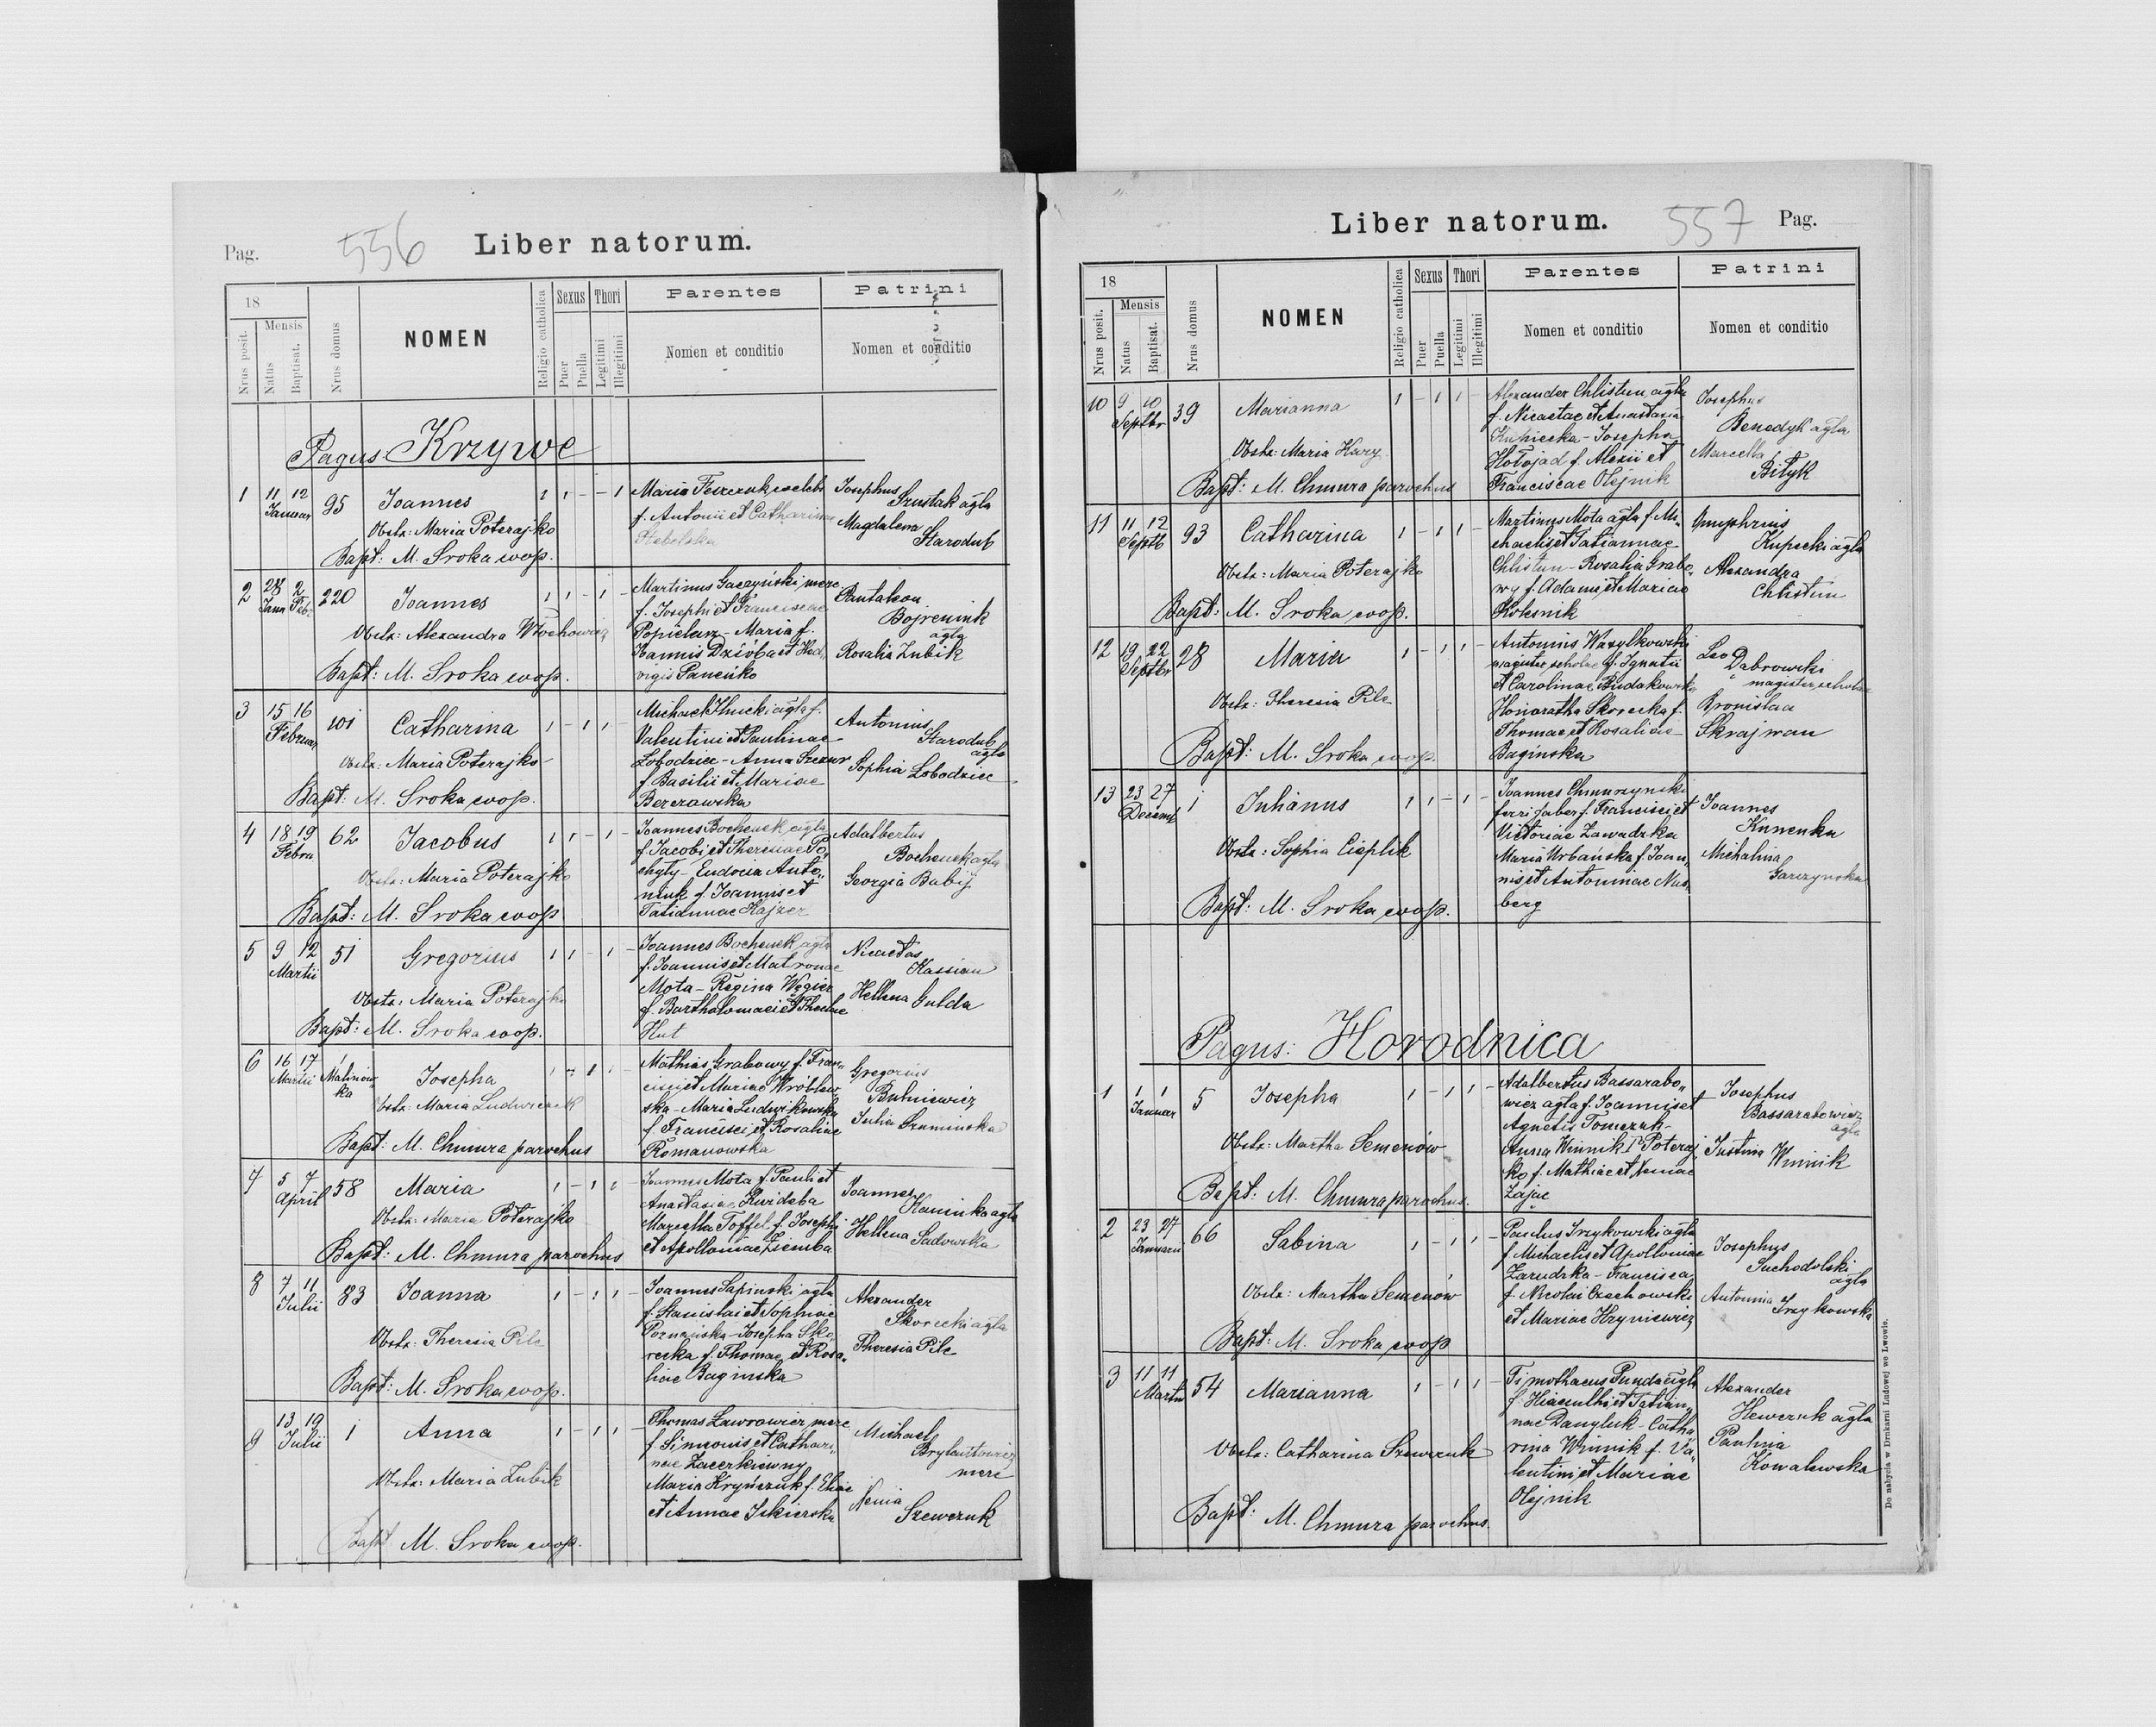 Pag. 556 Liber natorum.
18
Nrus posit. Mensis Natus Baptisat. Nrus domus NOMEN Religio catholica Sexus Puer Puella Thori Legitimi Illegitimi Parentes Nomen et conditio Patrini Nomen et conditio
Pagus Krzywe
1 11 12 Januar 95 Joannes 1 1 - - 1
Obstx: Maria Poterajko
Bapt: M. Sroka coop.
Maria caelebs
f. Antonii et Catharinae
Stebelska
Josephus
Szustak agla
Magdalena
Starodub
2 28 Jann 2 Feb 220 Joannes 1 1 - 1 -
Obstx: Alexandra Włochowicz
Bapt: M. Sroka coop.
Martinus Gaczyński merc
f. Josephi et Franciscae
Popielarz - Maria f.
Joannis Dzióba et Hed„
vigis Panciuko
Pantaleon
agla
Rosalia Zubik
3 15 16 Februar 101 Catharina 1 - 1 1 -
Obstx: Maria Poterajko
Bapt: M. Sroka coop.
Michael agla f.
Valentini et Paulinae
Łobodziec - Anna
f. Basilii et Mariae
Berezowska
Antonius
Starodub
agla
Sophia Łobodziec
4 18 19 Febru 62 Jacobus 1 1 - 1 -
Obstx: Maria Poterajko
Bapt: M. Sroka coop
Joannes Bochenek agla
f. Jacobi et Theresiae Po„
chyly - Eudocia Anto„
niuk f. Joannis et
Tatiannae Kajzer
Adalbertus
Bochenek agla
Georgia Babij
5 9 12 Martii 51 Gregorius 1 1 - 1 -
Obstx: Maria Poterajko
Bapt: M. Sroka coop.
Joannes Bochenek agla
f. Joannis et Matronae
Mota - Regina Węgier
f. Bartholomaei et Theclae
Hut
Nicaetas
Kassian
Hellena Gulda
6 16 17 Martii Malinów„ka Josepha
Obstx: Maria Ludwiczak
Bapt: M. Chmura parochus
Mathias Grabowy f. Fran„
cisci et Mariae Wróblew„
ska - Maria Ludwikowska
f. Francisci et Rosaliae
Romanowska
Gregorius
Buhniewicz
Julia Szuminska
7 5 7 April 58 Maria 1 - 1 1
Obstx: Maria Poterajko
Bapt: M. Chmura parochus
Joannes Mota f. Pauli et
Anastasiae Kwideba
Marcella Toffel f. Josephi
et Apolloniae Ziemba
Joannes
Kaminko agla
Hellena Sadowska
8 7 11 Julii 83 Joanna 1 - 1 1 -
Obstx: Theresia Pilc
Bapt: M. Sroka coop.
Joannes Sapinski agla
f. Stanislai et Sophiae
Poznańska - Josepha Sko„
recka f. Thomae et Rosa„
liae Baginska
Alexander
Skorecki agla
Theresia Pilc
9 13 19 Julii 1 Anna 1 - 1 1 -
Obstx: Maria Zubik
Bapt M. Sroka coop.
Thomas Ławrowicz merc
f. Simeonis et Cathari„
nae Zacerkiewny
Maria Kryńczuk f. Eliae
et Annae Iskierska
Michael
merc
Nenia
Szewczuk
Liber natorum. 557 Pag.
18
Nrus posit. Mensis Natus Baptisat. Nrus domus NOMEN Religio catholica Sexus Puer Puella Thori Legitimi Illegitimi Parentes Nomen et conditio Patrini Nomen et conditio
10 9 10 Septbr 39 Marianna 1 - 1 1 -
Obstx: Maria Hary
Bapt: M. Chmura parochus
Alexander Chlistun agla
f. Nicaetae et Anastasiae
Kupiecka - Josepha
Hołojad f. Alexii et
Franciscae Olejnik
Josephus
Benedyk agla
Marcella
Bityk
11 11 12 Septb 93 Catharina 1 - 1 1 -
Obstx: Maria Poterajko
Bapt: M. Sroka coop.
Martinus Mota agla f. Mi„
chaelis et Tatiannae
Chlistun - Rosalia Grabo„
wy f. Adami et Mariae
Kolesnik
Onuphrius
Kupecki agla
Alexandra
Chlistun
12 19 22 Septbr 28 Maria 1 - 1 1 -
Obstx: Theresia Pilc
Bapt: M. Sroka coop.
Antonius Wasylkowski
magister scholae f. Ignatii
et Carolinae Budakowska
Honoratha Skorecka f.
Thomae et Rosaliae
Baginska
Leo
Dabrowski
magister scholae
Bronislaa
Skrajwan
13 23 27 Decemb 1 Juhanus 1 1 - 1 -
Obstx: Sophia Cieplik
Bapt: M. Sroka coop.
Joannes Chmurzynski
ferri faber f. Francisci et
Victoriae Zawadzka
Maria Urbańska f. Joan„
nis et Antoninae Nus„
berg
Joannes
Kunenka
Michalina
Garczynska
Pagus: Horodnica
1 1 1 Januar 5 Josepha 1 - 1 1 -
Obstx: Martha Semenów
Bapt: M. Chmura parochus.
Adalbertus Bassarabo„
wicz agla f. Joannis et
Agnetis Tomczuk -
Anna Winnik Poteraj
ko f. Mathiae et Neniae
Zając
Josephus
Bassarabowicz
agla
Justina Winnik
2 23 27 Januarii 66 Sabina 1 - 1 1 -
Obstx: Martha Semenów
Bapt: M. Sroka coop
Paulus Irzykowski agla
f. Michaelis et Apolloniae
Zarudzka - Francisca
f. Nicolai Czechowski
et Mariae Hryniewicz
Josephus
Suchodolski
agla
Antonina Irzykowska
3 11 11 Martii 54 Marianna 1 - 1 1 -
Obstx: Catharina Szewczuk
Bapt: M. Chmura parochus.
Timothaeus Punda agla
f. Hiacinthi et Tatian„
nae Danyluk - Catha„
rina Winnik f. Va„
lentini et Mariae
Olejnik
Alexander
Hewczuk agla
Paulina
Kowalewska
Do nabycia w Drukarni Ludowej we Lwowie.